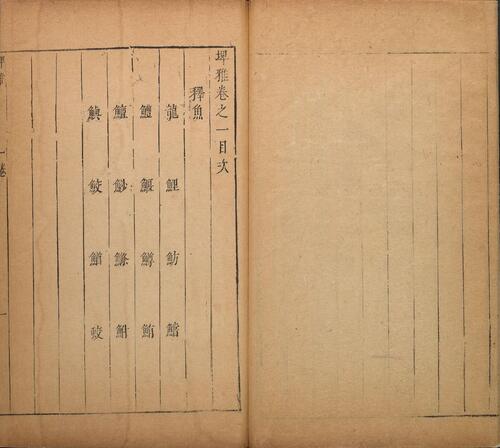 埤雅卷之一目次
釋魚
龍 鯉 魴 鱨
鱧 鰋 鱒 鮪
鱣 魦 鰷 鮒
鮫 鰌 蛟
埤雅 一卷 一